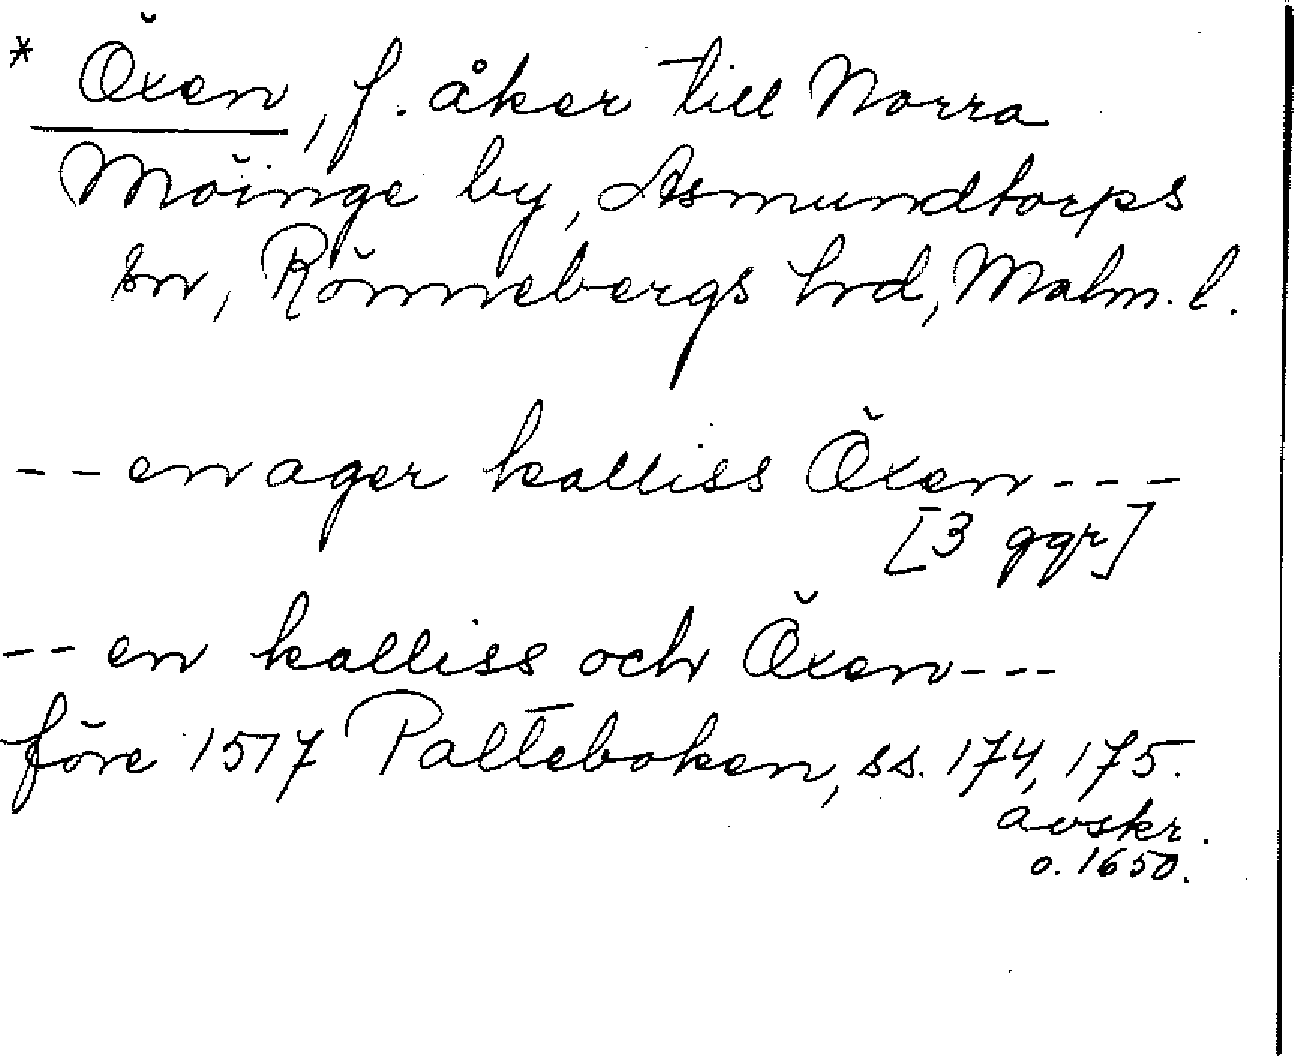 * Öxen, f. åker till Norra
Möinge by, Asmundtorps
sn, Rönnebergs hrd, Malm. l.
-- en ager kalliss Öxen ---
[3 ggr]
-- en kalliss och Öxen ---
före 1517 Palteboken, ss. 174, 175.
avskr.
o. 1650.